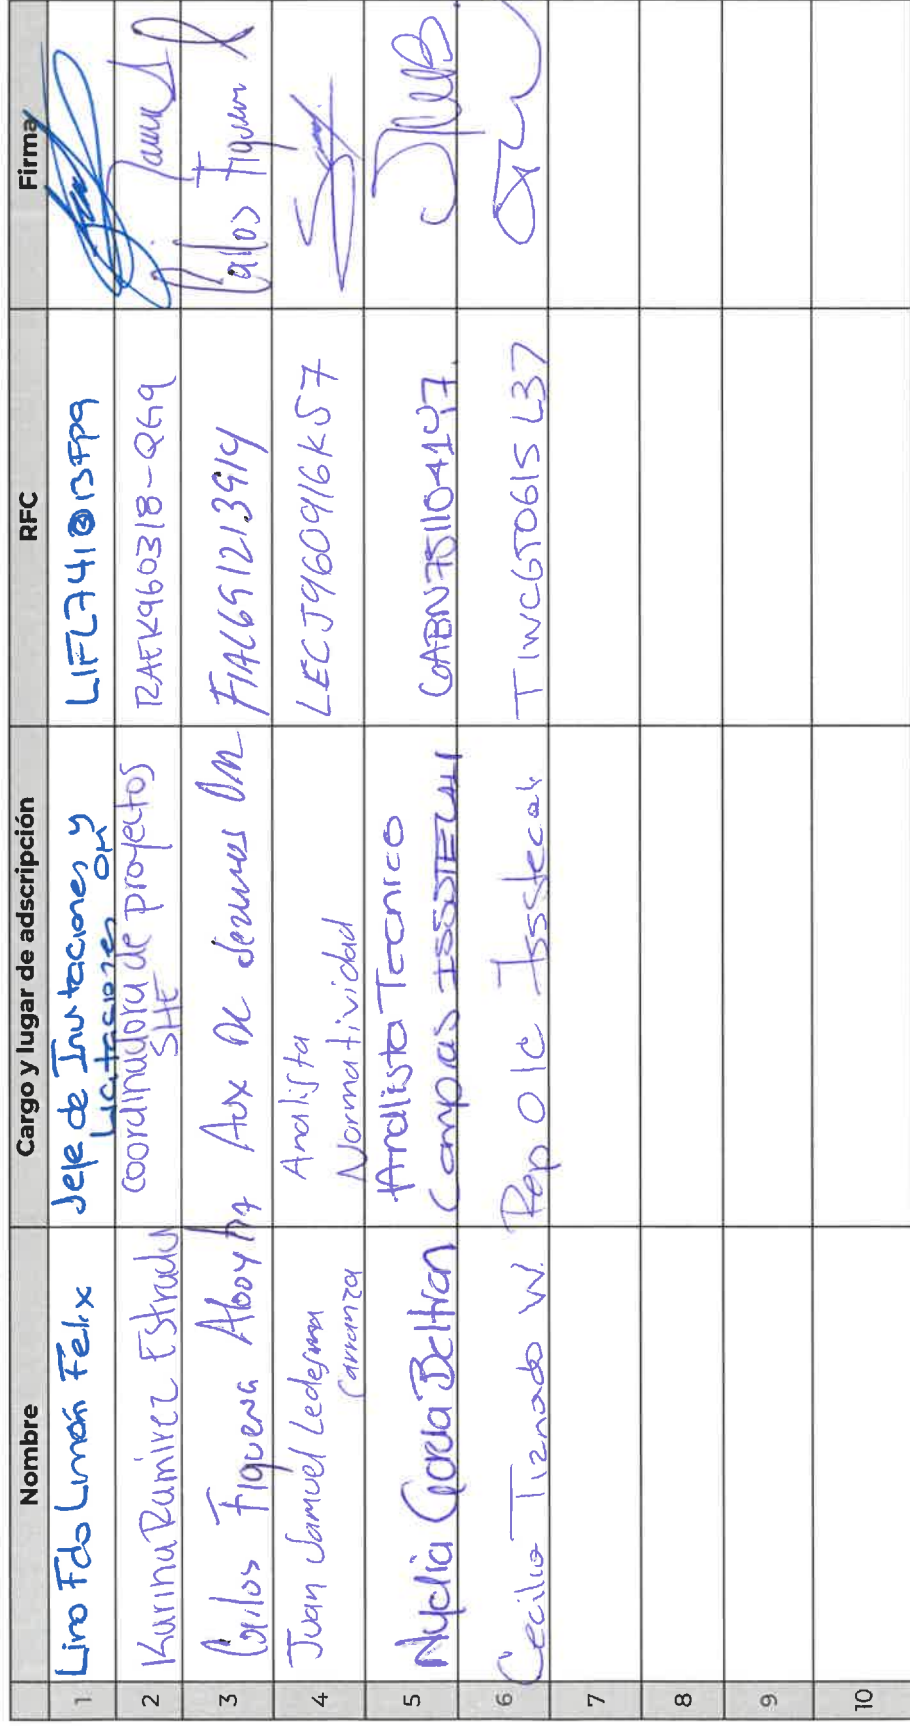 Nombre Cargo y lugar de adscripción RFC Firma
1 Lino Fdo Limón Félix Jefe de Invitaciones y Licitaciones OM LIFL741013FP9
2 Karina Ramirez Estrada Coordinadora de proyectos SHE RAEK960318-QG9
3 Carlos Figueroa Aboytia Aux De OM Carlos Figueroa
4 Juan Samuel Ledesma Carranza Analista Normatividad LECJ960916K57
5 Nydia Garcia Beltran Analista Tecnico Compras ISSSTECALI GABN751104147
6 Cecilia Tiznado W. Rep OIC Issstecali TIWC650615L37
7
8
9
10